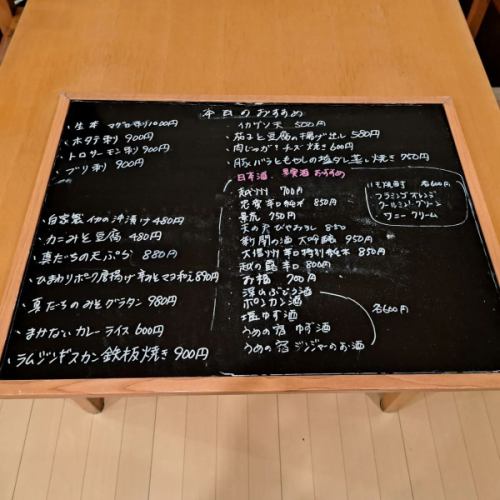 本日のおすすめ
・生本マグロ刺1000円
・ホタテ刺 900円
・トロサーモン刺り900円
・ブリ刺 900円
・自家製イカの沖漬け480円
・カニみと豆腐 480円
・真だちの天ぷら 880円
・ひまわりポーク唐揚げ 辛みそマヨ和え890円
・真だちのみそグラタン 980円
・まかないカレーライス 600円
・ラムジンギスカン鉄板焼き 900円
・イカゲソ天 500円
・茄子と豆腐の揚げ出し 580円
・肉じゃがチーズ焼き 600円
・豚バラともやしの塩ダレ蒸し焼き 750円
日本酒、果実酒 おすすめ
越州 700円
花寒 辛口純米 850円
景虎 750円
天の戸 びやみうし 850
新聞の酒 大吟醸 950円
大信州 辛口特別純米 850円
越の露 辛口 800円
お福 700円
深山ぶどう酒
ポンカン酒
塩ゆず酒
うめの宿 ゆず酒
うめの宿 ジンジャーのお酒
各600円
いも焼酎 各600円
フラミンゴオレンジ
クールミントグリーン
ワニー クリーム